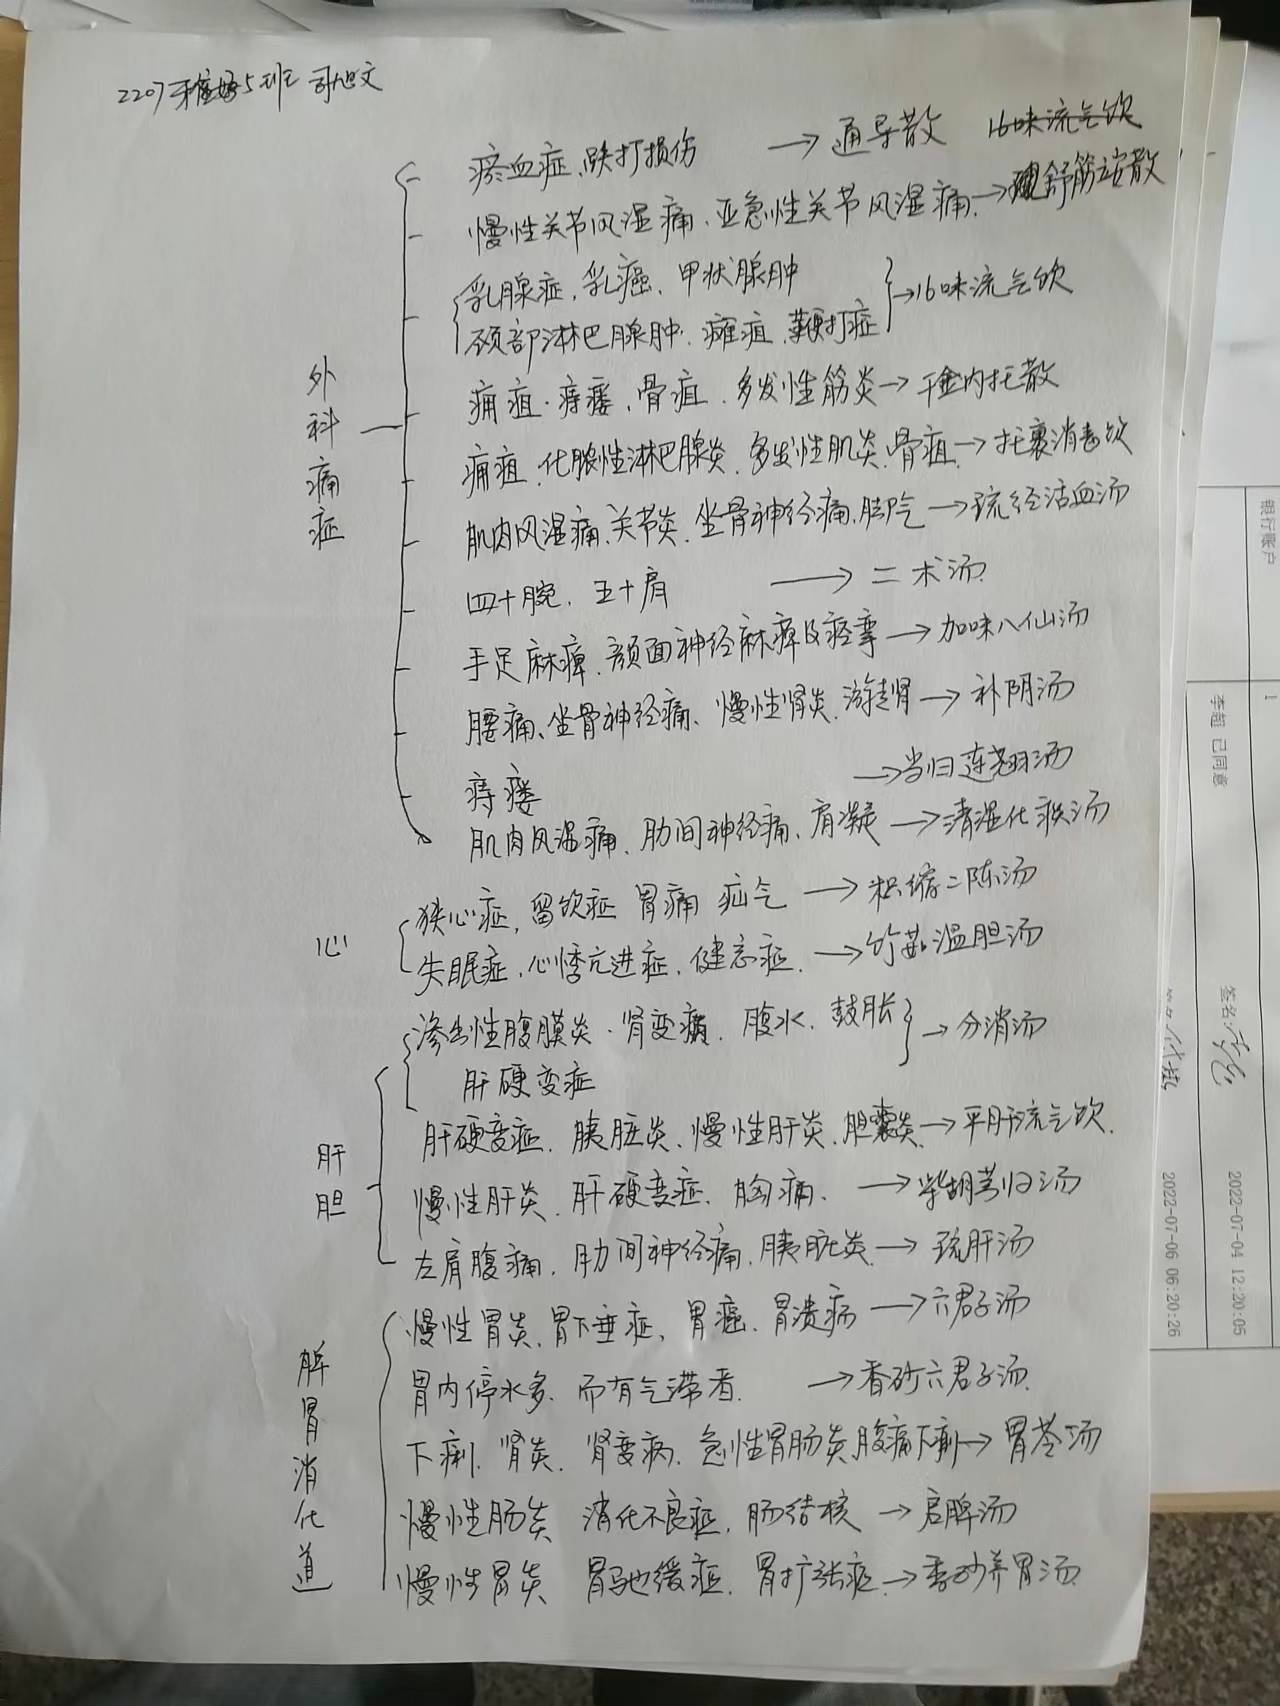 2207 5班 司旭文
瘀血症、跌打损伤 → 通导散 16味流气饮
慢性关节风湿痛、亚急性关节风湿痛 → 舒筋立安散
乳腺症、乳癌、甲状腺肿
颈部淋巴腺肿、瘫疽、鞭打症 → 16味流气饮
痈疽、痔瘘、骨疽、多发性筋炎 → 千金内托散
痈疽、化脓性淋巴腺炎、多发性肌炎、骨疽 → 托裏消毒饮
肌肉风湿痛、关节炎、坐骨神经痛、脚气 → 疏经活血汤
四十腕、五十肩 → 二术汤
手足麻痺、颜面神经麻痺及痉挛 → 加味八仙汤
腰痛、坐骨神经痛、慢性肾炎、游走肾 → 补阴汤
痔瘘 → 当归连翘汤
肌肉风湿痛、肋间神经痛、肩凝 → 清湿化痰汤
外科痛症
狭心症、留饮症 胃痛 疝气 → 枳缩二陈汤
失眠症、心悸亢进症、健忘症 → 竹茹温胆汤
心
渗出性腹膜炎、肾变病、腹水、鼓胀
肝硬变症 → 分消汤
肝硬变症、胰脏炎、慢性肝炎、胆囊炎 → 平肝流气饮
慢性肝炎、肝硬变症、胸痛 → 柴胡芎归汤
左肩腹痛、肋间神经痛、胰脏炎 → 疏肝汤
肝胆
慢性胃炎、胃下垂症、胃癌、胃溃疡 → 六君子汤
胃内停水多、而有气滞者 → 香砂六君子汤
下痢、肾炎、肾变病、急性胃肠炎腹痛下痢 → 胃苓汤
慢性肠炎 消化不良症、肠结核 → 启脾汤
慢性胃炎 胃弛缓症、胃扩张症 → 香砂养胃汤
脾胃消化道
银行账户
1
李超 已同意
签名
2022-07-04 12:20:05
2022-07-06 06:20:26